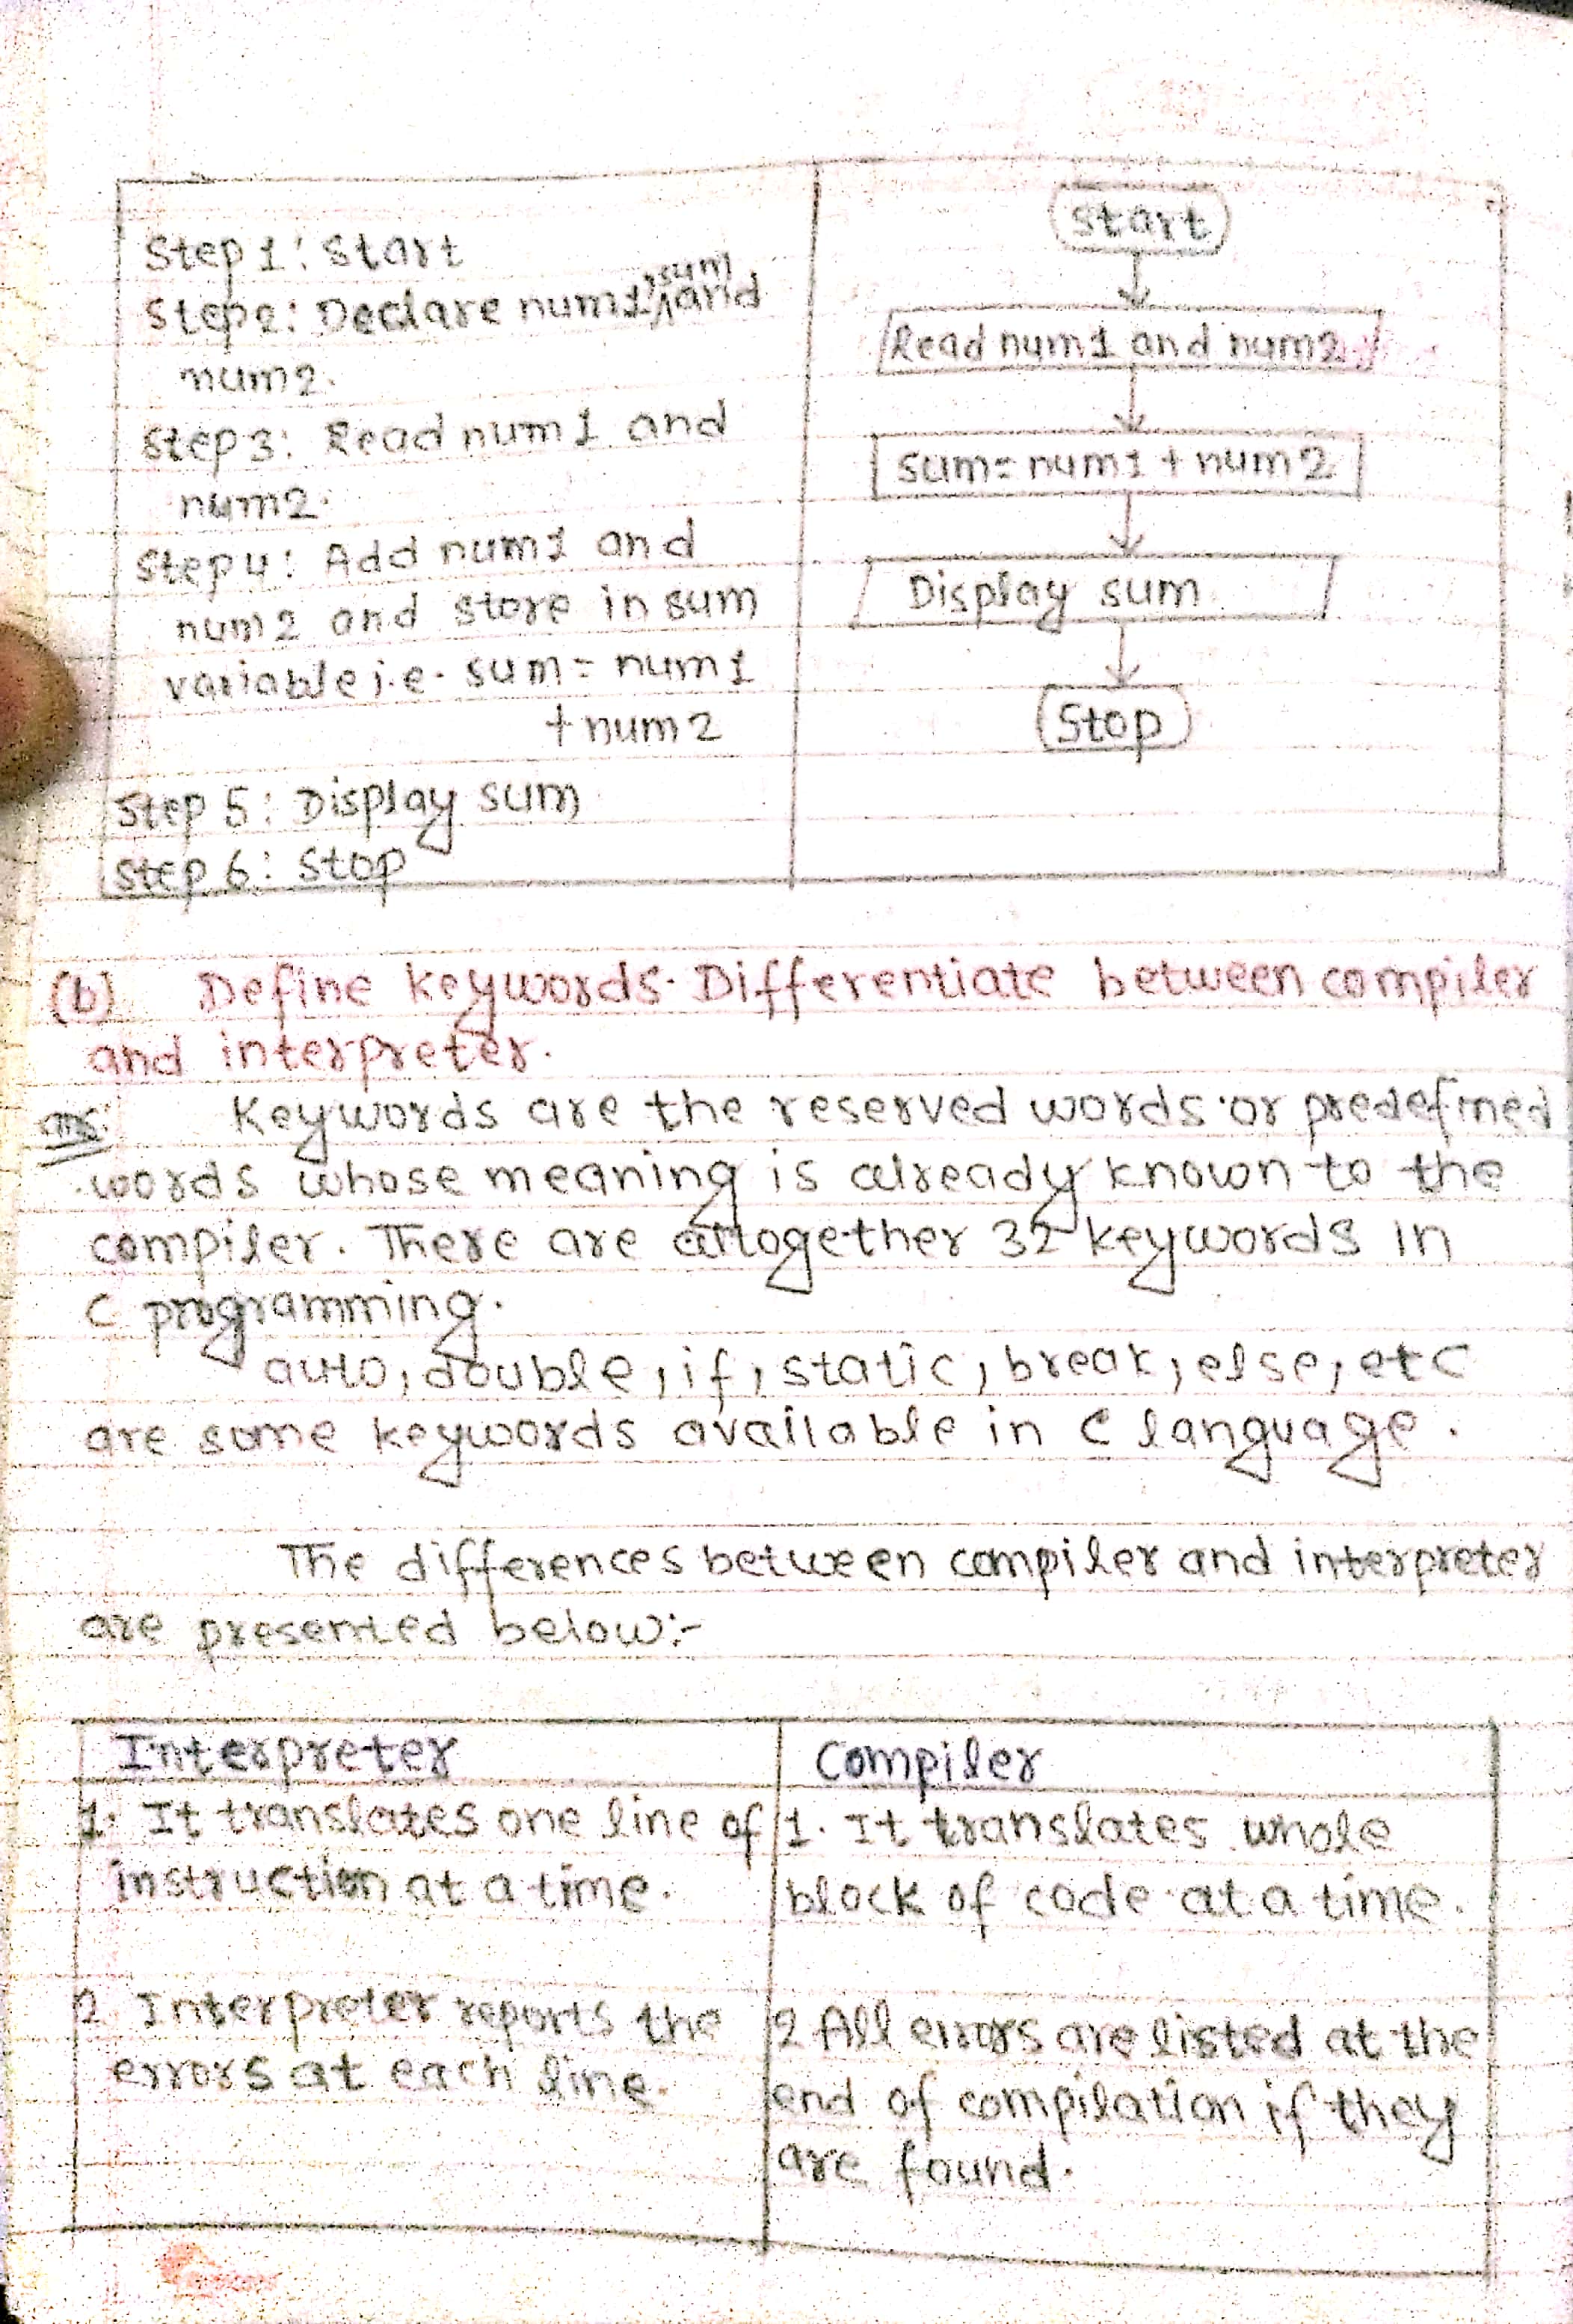 Step 1: Start
Step 2: Declare num1, sum and
num2.
Step 3: Read num1 and
num2.
Step 4: Add num1 and
num2 and store in sum
variable i.e. sum = num1
+ num2
Step 5: Display sum
Step 6: Stop
Start
Read num1 and num2
sum = num1 + num2
Display sum
Stop
(b) Define keywords. Differentiate between compiler
and interpreter.
ans. Keywords are the reserved words or predefined
words whose meaning is already known to the
compiler. There are altogether 32 keywords in
C programming.
auto, double, if, static, break, else, etc
are some keywords available in C language.
The differences between compiler and interpreter
are presented below:-
Interpreter
1. It translates one line of
instruction at a time.
2. Interpreter reports the
errors at each line.
Compiler
1. It translates whole
block of code at a time.
2 All errors are listed at the
end of compilation if they
are found.